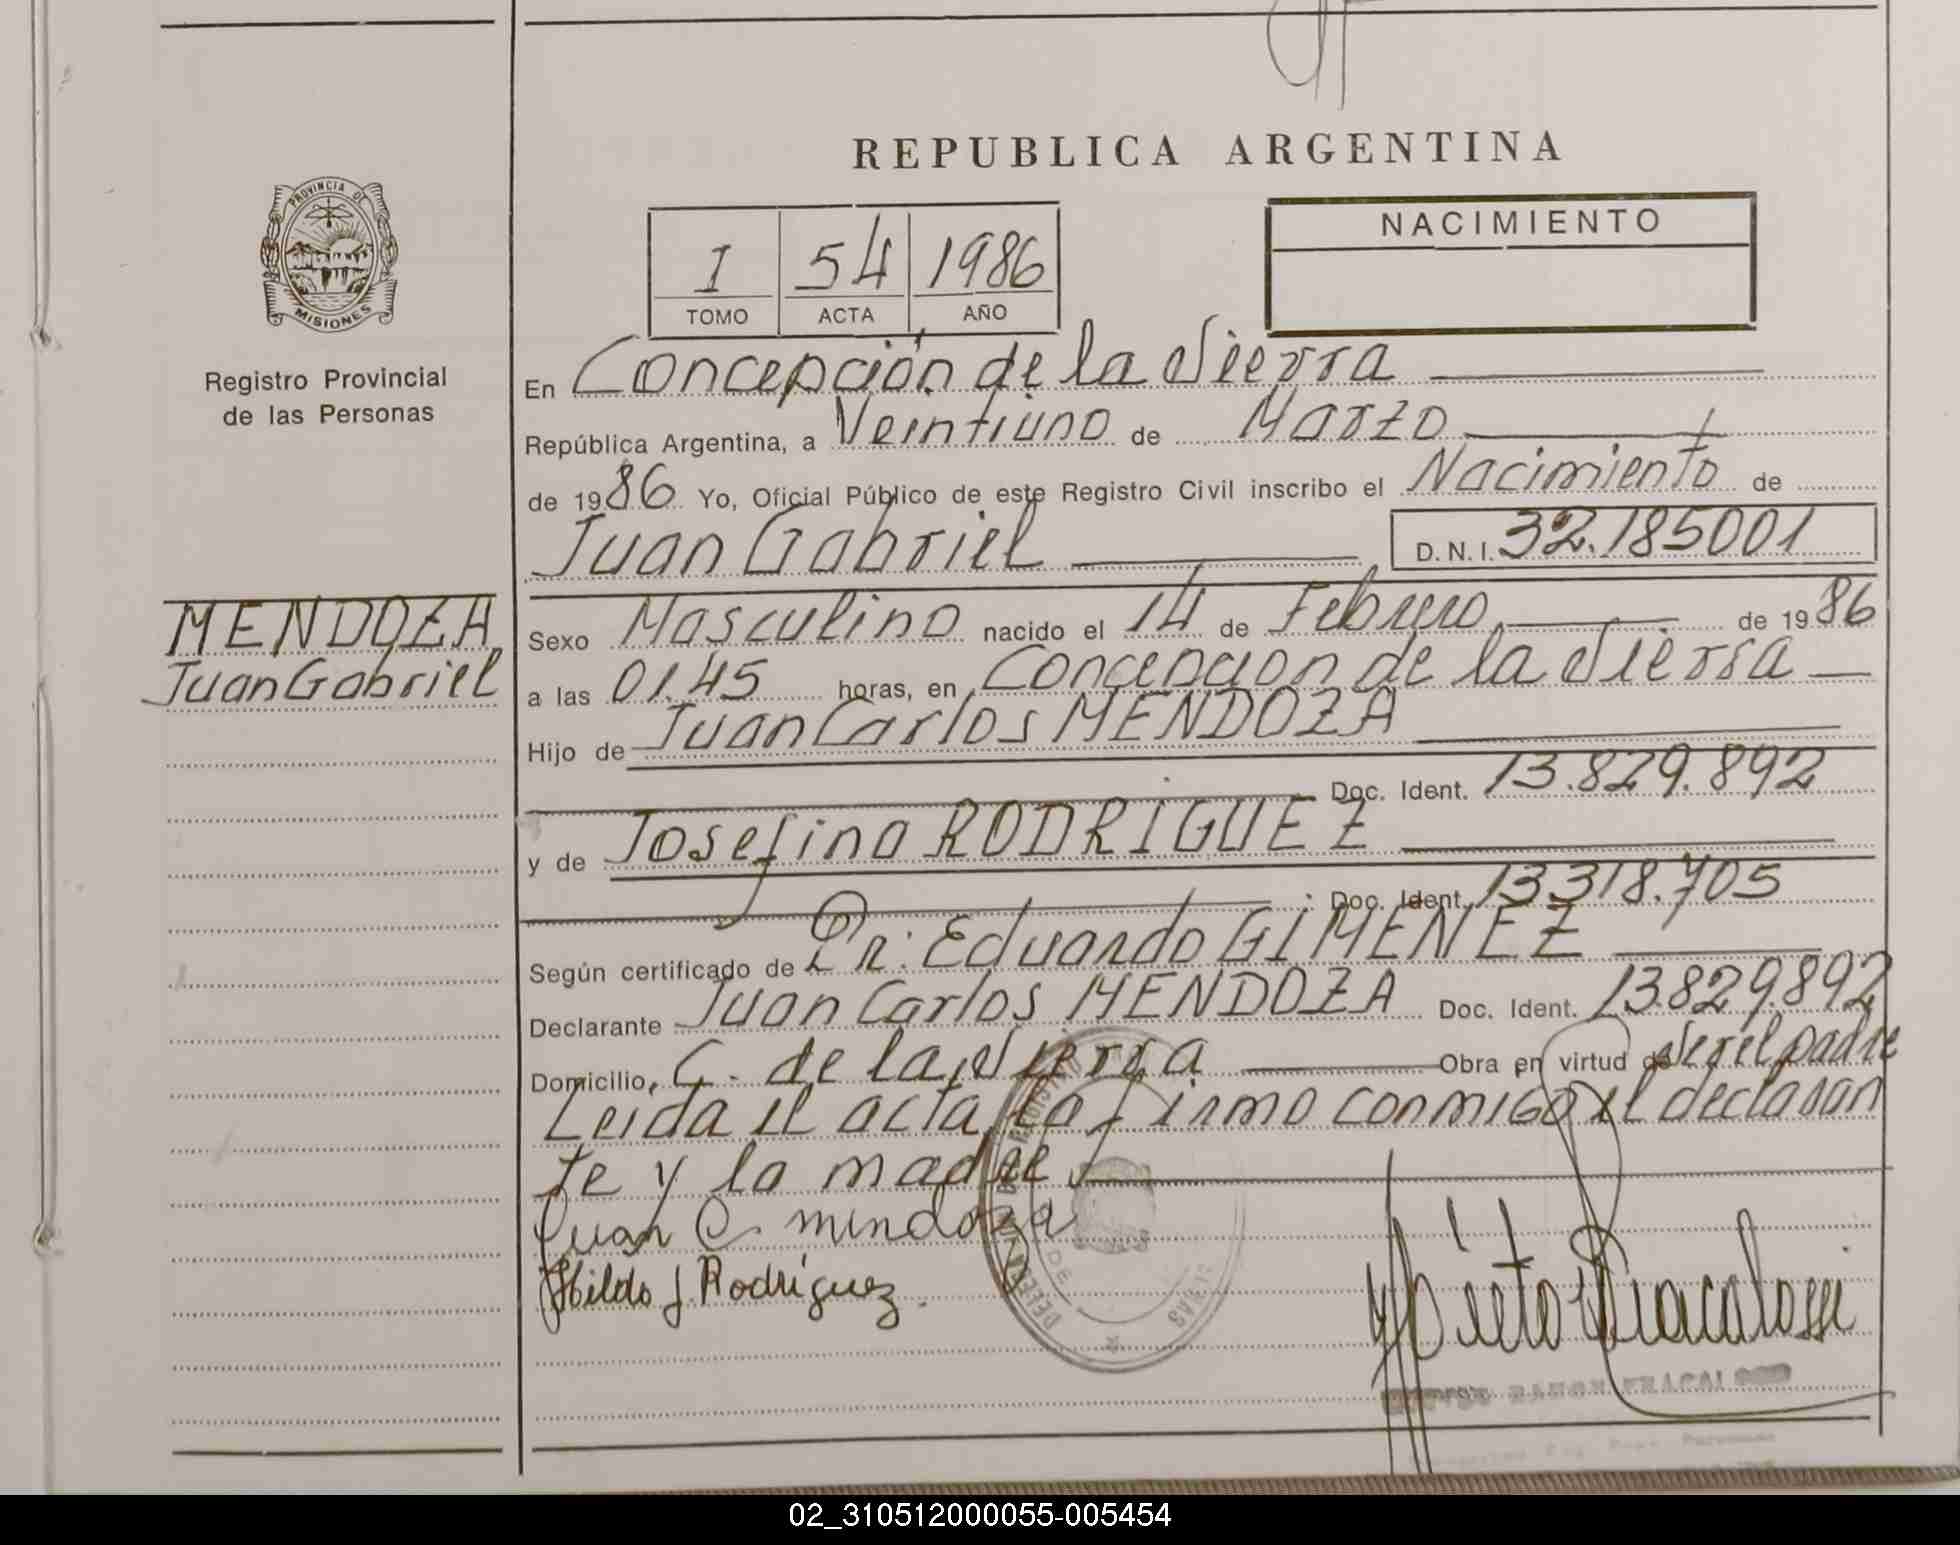 REPUBLICA ARGENTINA
PROVINCIA DE
MISIONES
Registro Provincial
de las Personas
NACIMIENTO
I 54 1986
TOMO ACTA AÑO
En Concepción de la Sierra
República Argentina, a Veintiuno de Marzo
de 1986 Yo, Oficial Público de este Registro Civil inscribo el Nacimiento de
Juan Gabriel D. N. I. 32.185001
MENDOZA
Juan Gabriel
Sexo Masculino nacido el 14 de Febrero de 1986
a las 01.45 horas, en Concepcion de la Sierra
Hijo de Juan Carlos MENDOZA
Doc. Ident. 13.829.892
y de Josefina RODRIGUEZ
Doc. Ident. 13318.705
Según certificado de Dr: Eduardo GIMENEZ
Declarante Juan Carlos MENDOZA Doc. Ident. 13.829.892
Domicilio, C. de la Sierra Obra en virtud de Ser el padre
Leida el acta, la firmo conmigo el declaran
te y la madre
Juan C. mendoza
J Rodríguez.
02_310512000055-005454